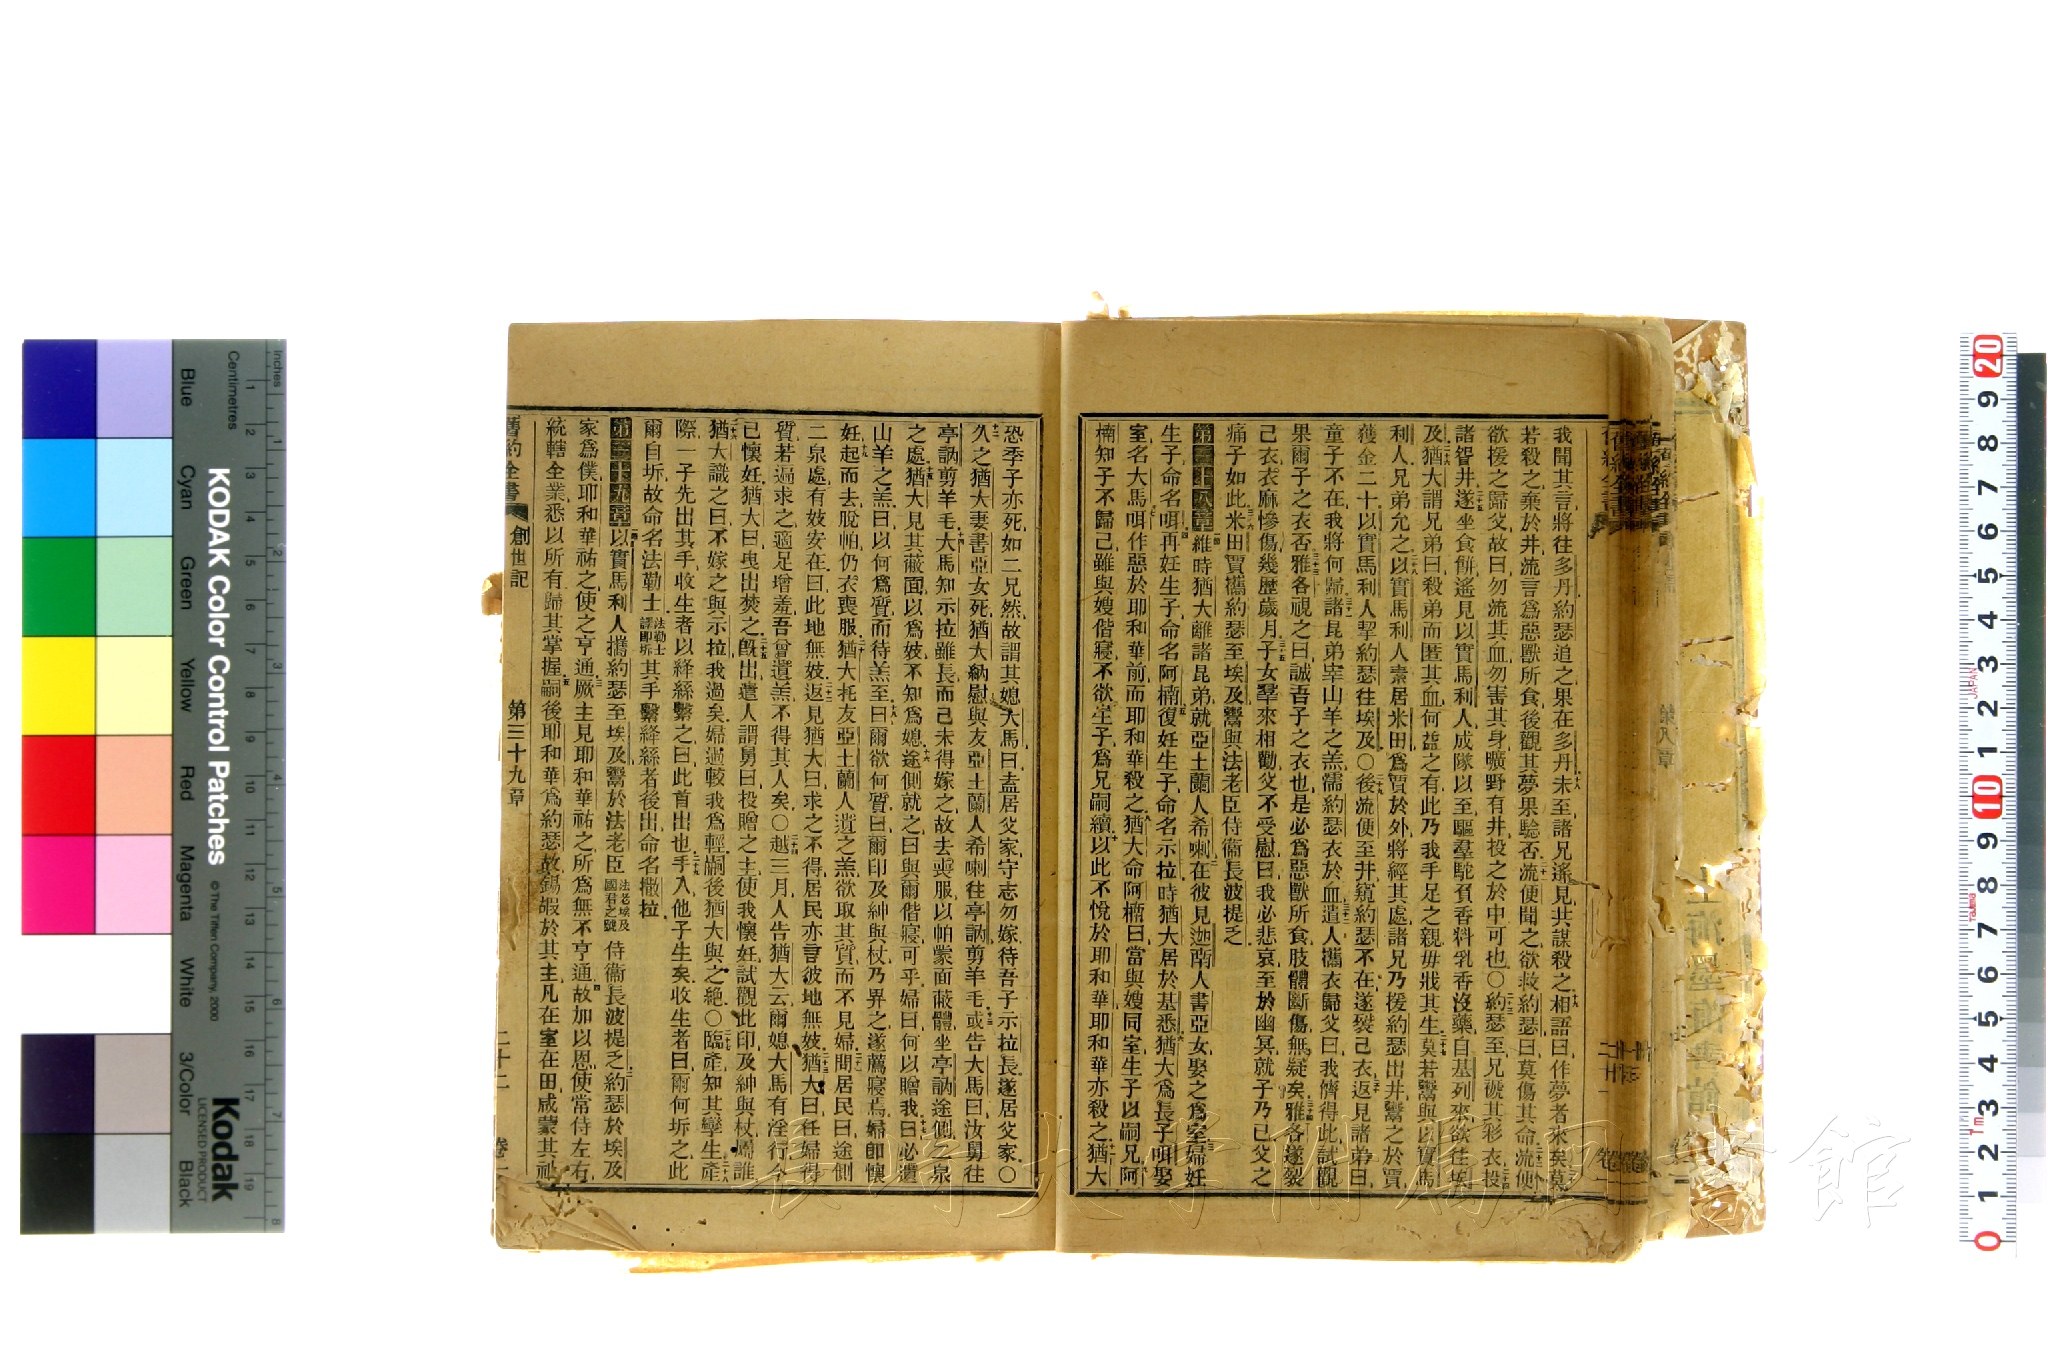 我聞其言將往多丹約瑟追之果在多丹未至諸兄遙見共謀殺之相語曰作夢者來矣莫
若殺之棄於井流言爲惡獸所食後觀其夢果驗否流便聞之欲救約瑟曰莫傷其命流便
欲援之歸父故曰勿流其血勿害其身曠野有井投之於中可也○約瑟至兄褫其彩衣投
諸智井遂坐食餅遙見以實馬利人成隊以至驅羣駝負香料乳香沒藥自基列來欲往埃
及猶大謂兄弟曰殺弟而匿其血何益之有此乃我手足之親毋戕其生莫若鬻與以實馬
利人兄弟允之以實馬利人素居米田爲賈於外將經其處諸兄乃援約瑟出井鬻之於賈
獲金二十以實馬利人挈約瑟往埃及○後流便至井窺約瑟不在遂裂己衣返見諸弟曰
童子不在我將何歸諸昆弟宰山羊之羔濡約瑟衣於血遣人攜衣歸父曰我儕得此試觀
果爾子之衣否雅各視之曰誠吾子之衣也是必爲惡獸所食肢體斷傷無疑矣雅各遂裂
己衣衣麻慘傷幾歷歲月子女羣來相勸父不受慰曰我必悲哀至於幽冥就子乃已父之
痛子如此米田賈攜約瑟至埃及鬻與法老臣侍衛長波提乏
第三十八章維時猶大離諸昆弟就亞土蘭人希喇在彼見迦南人書亞女娶之爲室婦妊
生子命名咡再妊生子命名阿楠復妊生子命名示拉時猶大居於基悉猶大爲長子咡娶
室名大馬咡作惡於耶和華前而耶和華殺之猶大命阿楠曰當與嫂同室生子以嗣兄阿
楠知子不歸己雖與嫂偕寢不欲生子爲兄嗣續以此不悅於耶和華耶和華亦殺之猶大
恐季子亦死如二兄然故謂其媳大馬曰盍居父家守志勿嫁待吾子示拉長遂居父家○
久之猶大妻書亞女死猶大納慰與友亞土蘭人希喇往亭訥剪羊毛或告大馬曰汝舅往
亭訥剪羊毛大馬知示拉雖長而己未得嫁之故去喪服以帕蒙面蔽體坐亭訥途側泉
之處猶大見其蔽面以爲妓不知爲媳途側就之曰與爾偕寢可乎婦曰何以贈我曰必遺
山羊之羔曰以何爲質而待羔至曰爾欲何質曰爾印及紳與杖乃畀之遂薦寢焉婦卽懷
妊起而去脫帕仍衣喪服猶大托友亞土蘭人遺之羔欲取其質而不見婦問居民曰途側
二泉處有妓安在曰此地無妓返見猶大曰求之不得居民亦言彼地無妓猶大曰任婦得
質若過求之適足增羞吾曾遺羔不得其人矣○越三月人告猶大云爾媳大馬有淫行今
已懷妊猶大曰曳出焚之旣出遣人謂舅曰投贈之主使我懷妊試觀此印及紳與杖屬誰
猶大識之曰不嫁之與示拉我過矣婦遜較我爲輕嗣後猶大與之絕○臨產知其孿生產
際一子先出其手收生者以絳絲繫之曰此首出也手入他子生矣收生者曰爾何坼之此
爾自坼故命名法勒士法勒士譯卽坼其手繫絳絲者後出命名撒拉
第三十九章以實馬利人攜約瑟至埃及鬻於法老臣法老埃及國君之號侍衛長波提乏約瑟於埃及
家爲僕耶和華祐之使之亨通厥主見耶和華祐之所爲無不亨通故加以恩使常侍左右
統轄全業悉以所有歸其掌握嗣後耶和華爲約瑟故錫嘏於其主凡在室在田咸蒙其祉
舊約全書 創世記 第三十九章 二十二 卷一
第八章
上海墨海書館
長崎大学附属図書館
KODAK Color Control Patches
© The Tiffen Company, 2000
Kodak
LICENSED PRODUCT
Inches
Centimetres
Blue Cyan Green Yellow Red Magenta White 3/Color Black
JAPAN